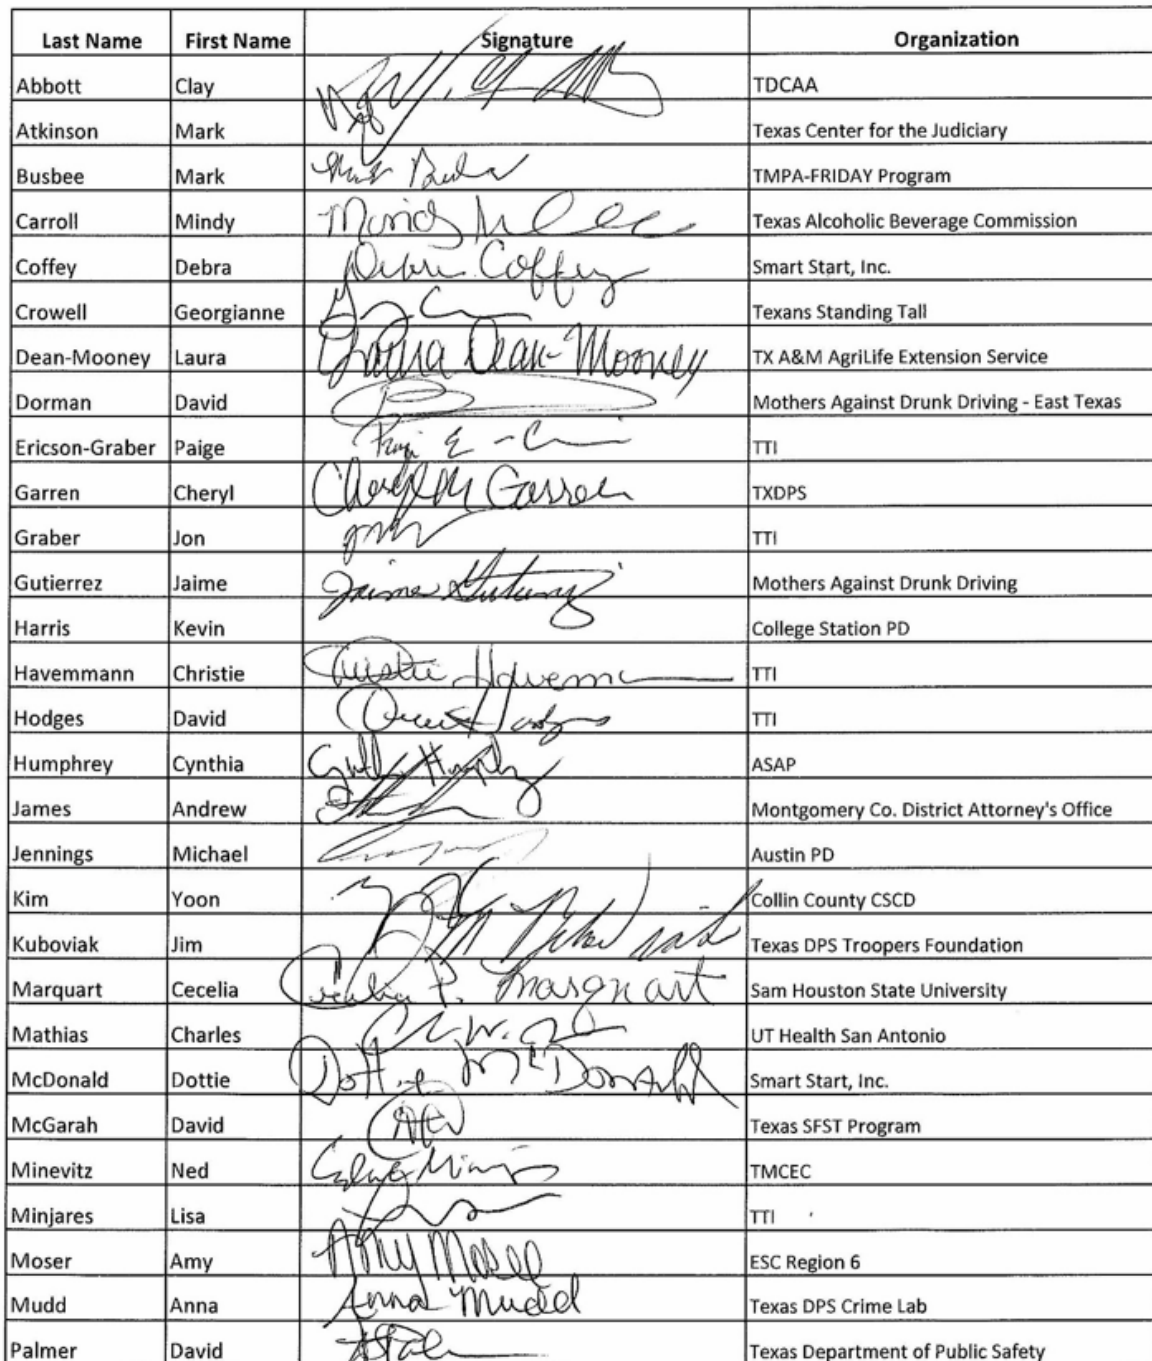 Last Name First Name Signature Organization
Abbott Clay TDCAA
Atkinson Mark Texas Center for the Judiciary
Busbee Mark TMPA-FRIDAY Program
Carroll Mindy Texas Alcoholic Beverage Commission
Coffey Debra Debra Coffey Smart Start, Inc.
Crowell Georgianne Texans Standing Tall
Dean-Mooney Laura Laura Dean-Mooney TX A&M AgriLife Extension Service
Dorman David Mothers Against Drunk Driving - East Texas
Ericson-Graber Paige TTI
Garren Cheryl Cheryl M Garren TXDPS
Graber Jon TTI
Gutierrez Jaime Jaime Gutierrez Mothers Against Drunk Driving
Harris Kevin College Station PD
Havemmann Christie TTI
Hodges David TTI
Humphrey Cynthia ASAP
James Andrew Montgomery Co. District Attorney's Office
Jennings Michael Austin PD
Kim Yoon Collin County CSCD
Kuboviak Jim Texas DPS Troopers Foundation
Marquart Cecelia Cecelia P. Marquart Sam Houston State University
Mathias Charles UT Health San Antonio
McDonald Dottie Dottie McDonald Smart Start, Inc.
McGarah David Texas SFST Program
Minevitz Ned TMCEC
Minjares Lisa TTI
Moser Amy Amy Moser ESC Region 6
Mudd Anna Anna Mudd Texas DPS Crime Lab
Palmer David Texas Department of Public Safety